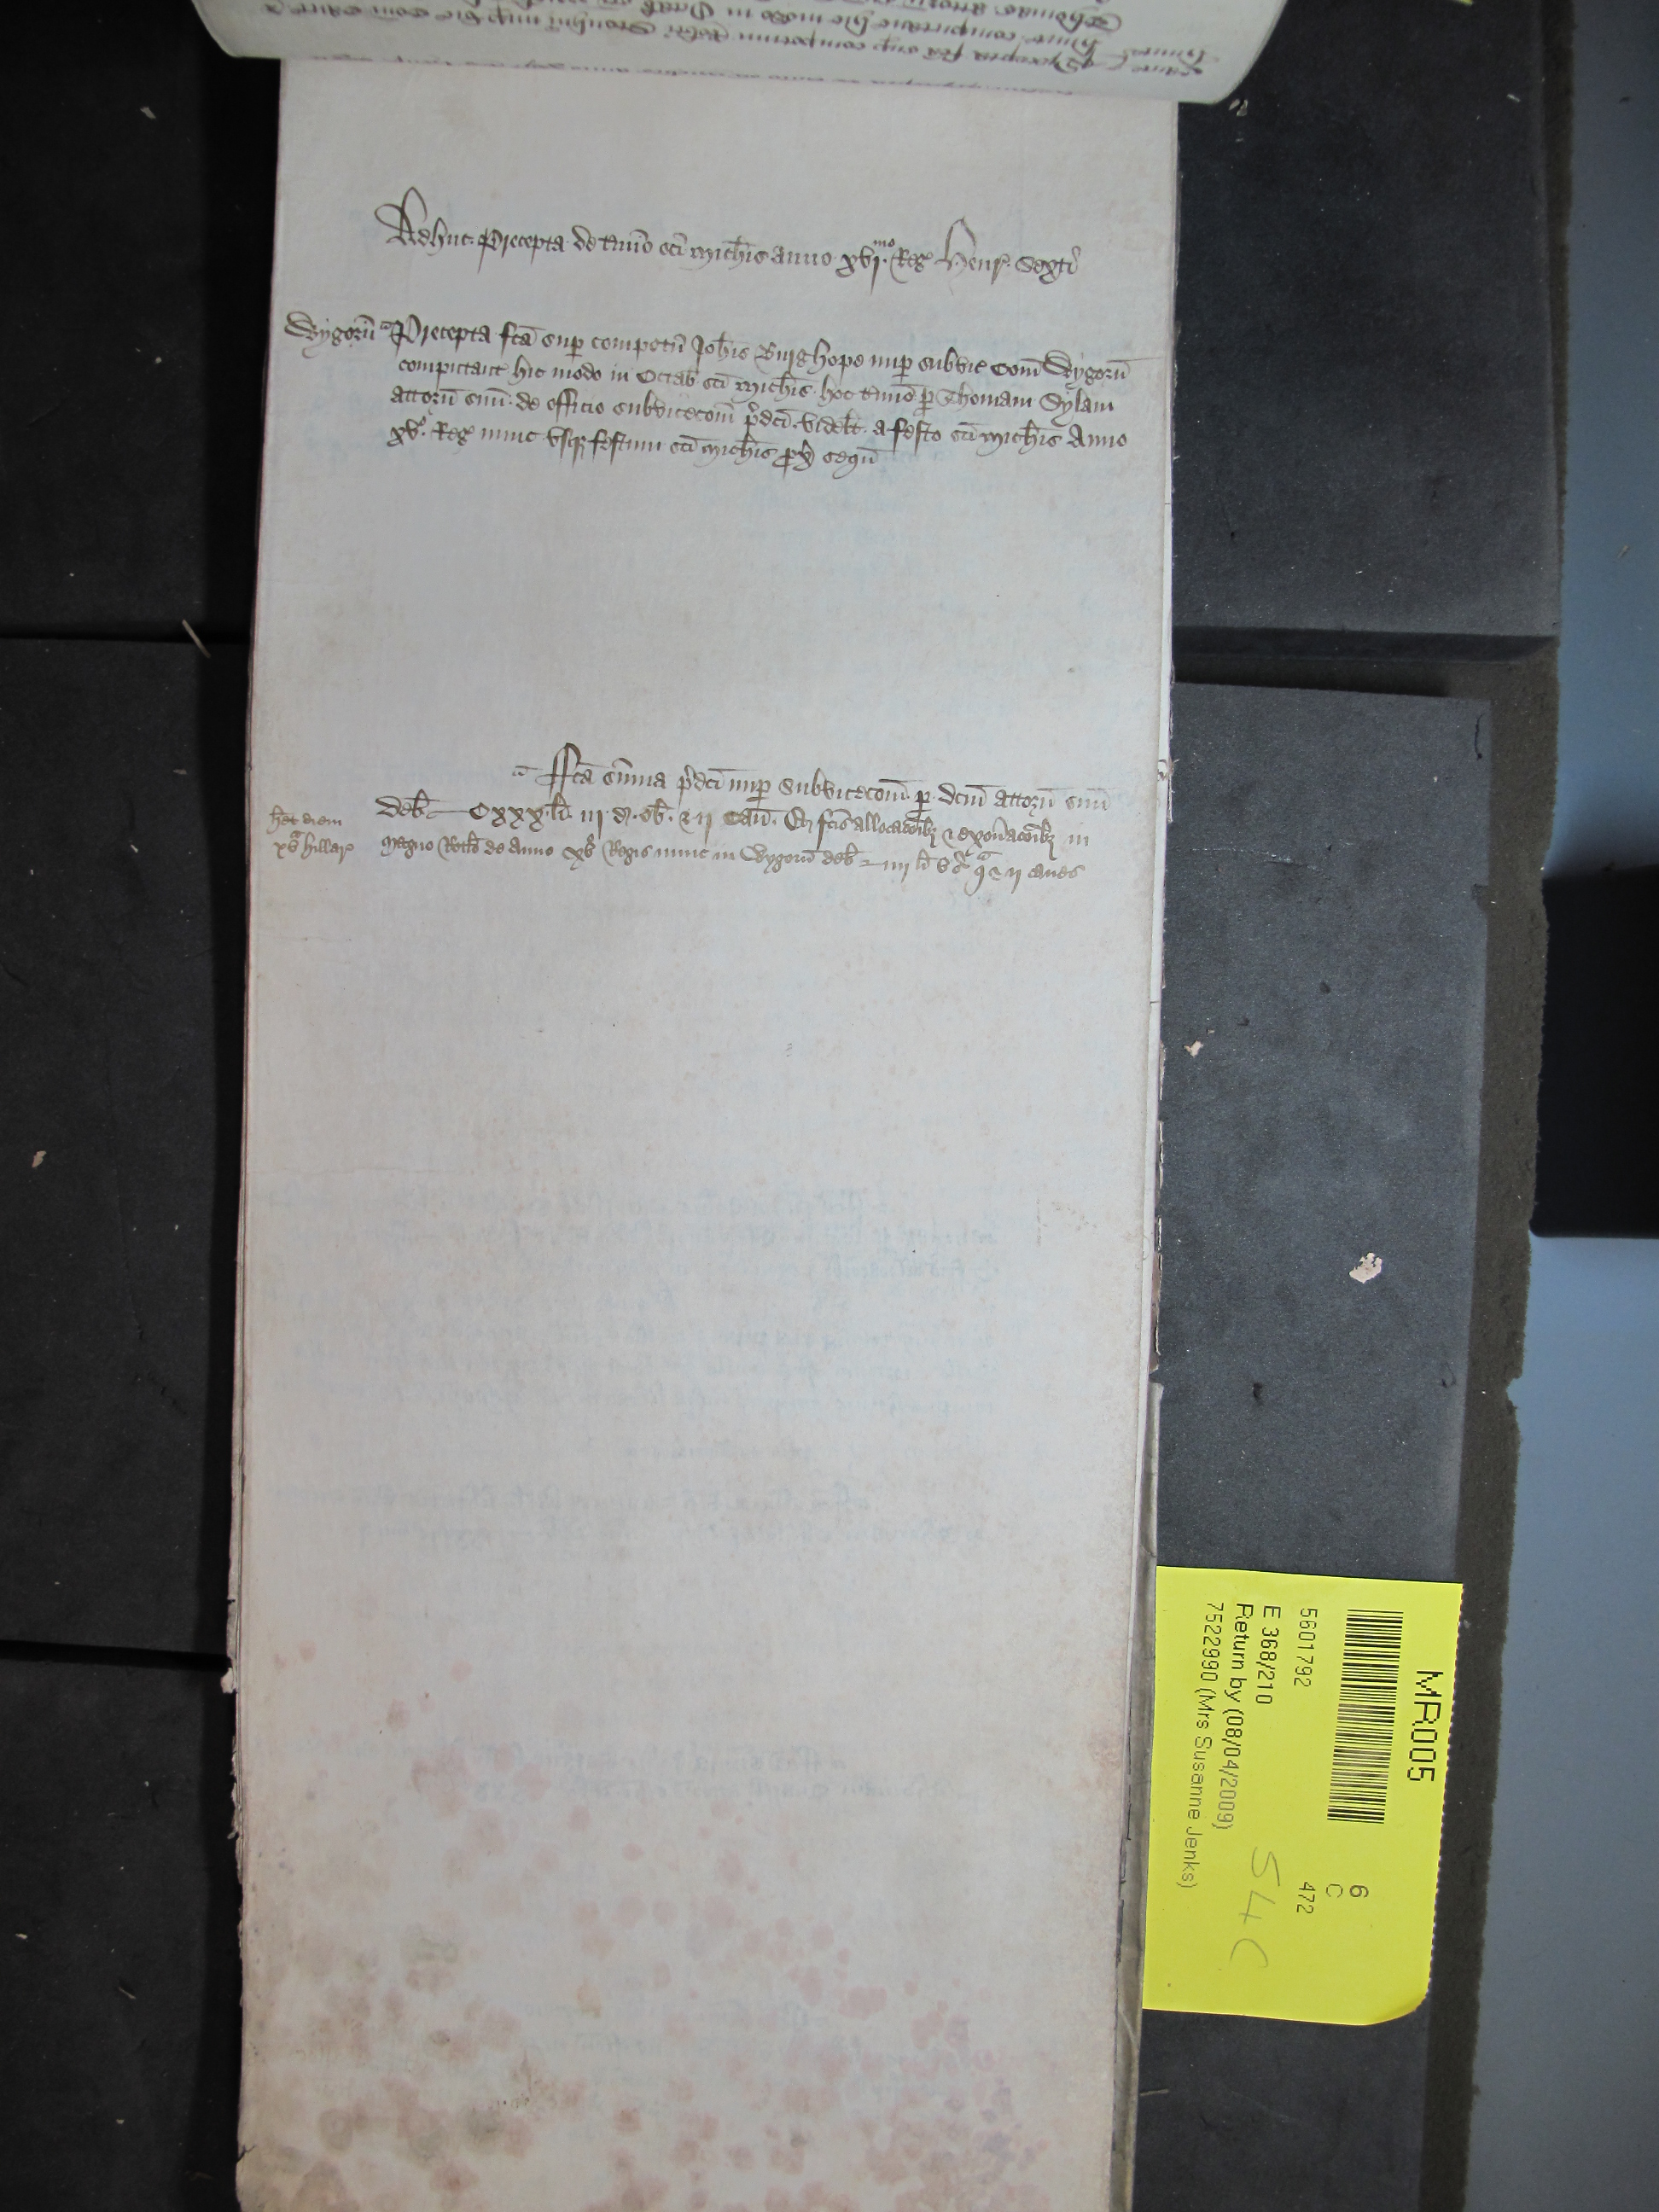 Adhuc Precepta de t'mino sci Mich'is anno xvjmo Reg' Henr' Sexti
Wygorn' Precepta fca sup compotu' Joh'is Burghope nup subvic' Com' Wygorn'
computant' hic modo in Octab' sci Mich'is hoc t'mino p Thomam Sylam
attorn' suu' de officio subvicecom' p'dci videl't a festo sci Mich'is Anno
xv° Reg' nunc usq festum sci Mich'is px' sequ'
Ffca su'ma p'dci nup subvicecom' p dcm attorn' suu'
deb' CXXX li' iij d' ob' & ij Can' Et fcis allocac'oib3 & exon'ac'oib3 in
het diem
xva hillar'
Magno Rot'lo de Anno xv° Regis nunc in Wygorn' deb' iiij li' v s' qa & ij canes
MR005
5601792
6
C
472
E 368/210
Return by (08/04/2009)
7522990 (Mrs Susanne Jenks)
54 C